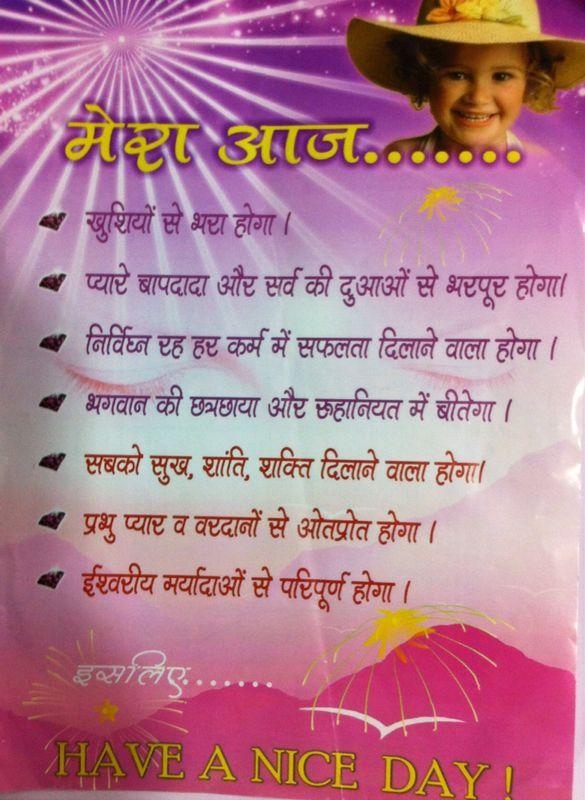 मेरा आज.......
खुशियों से भरा होगा ।
प्यारे बापदादा और सर्व की दुआओं से भरपूर होगा।
निर्विघ्न रह हर कर्म में सफलता दिलाने वाला होगा ।
भगवान की छत्रछाया और रूहानियत में बीतेगा ।
सबको सुख, शांति, शक्ति दिलाने वाला होगा।
प्रभु प्यार व वरदानों से ओतप्रोत होगा ।
ईश्वरीय मर्यादाओं से परिपूर्ण होगा ।
इसलिए.......
HAVE A NICE DAY !